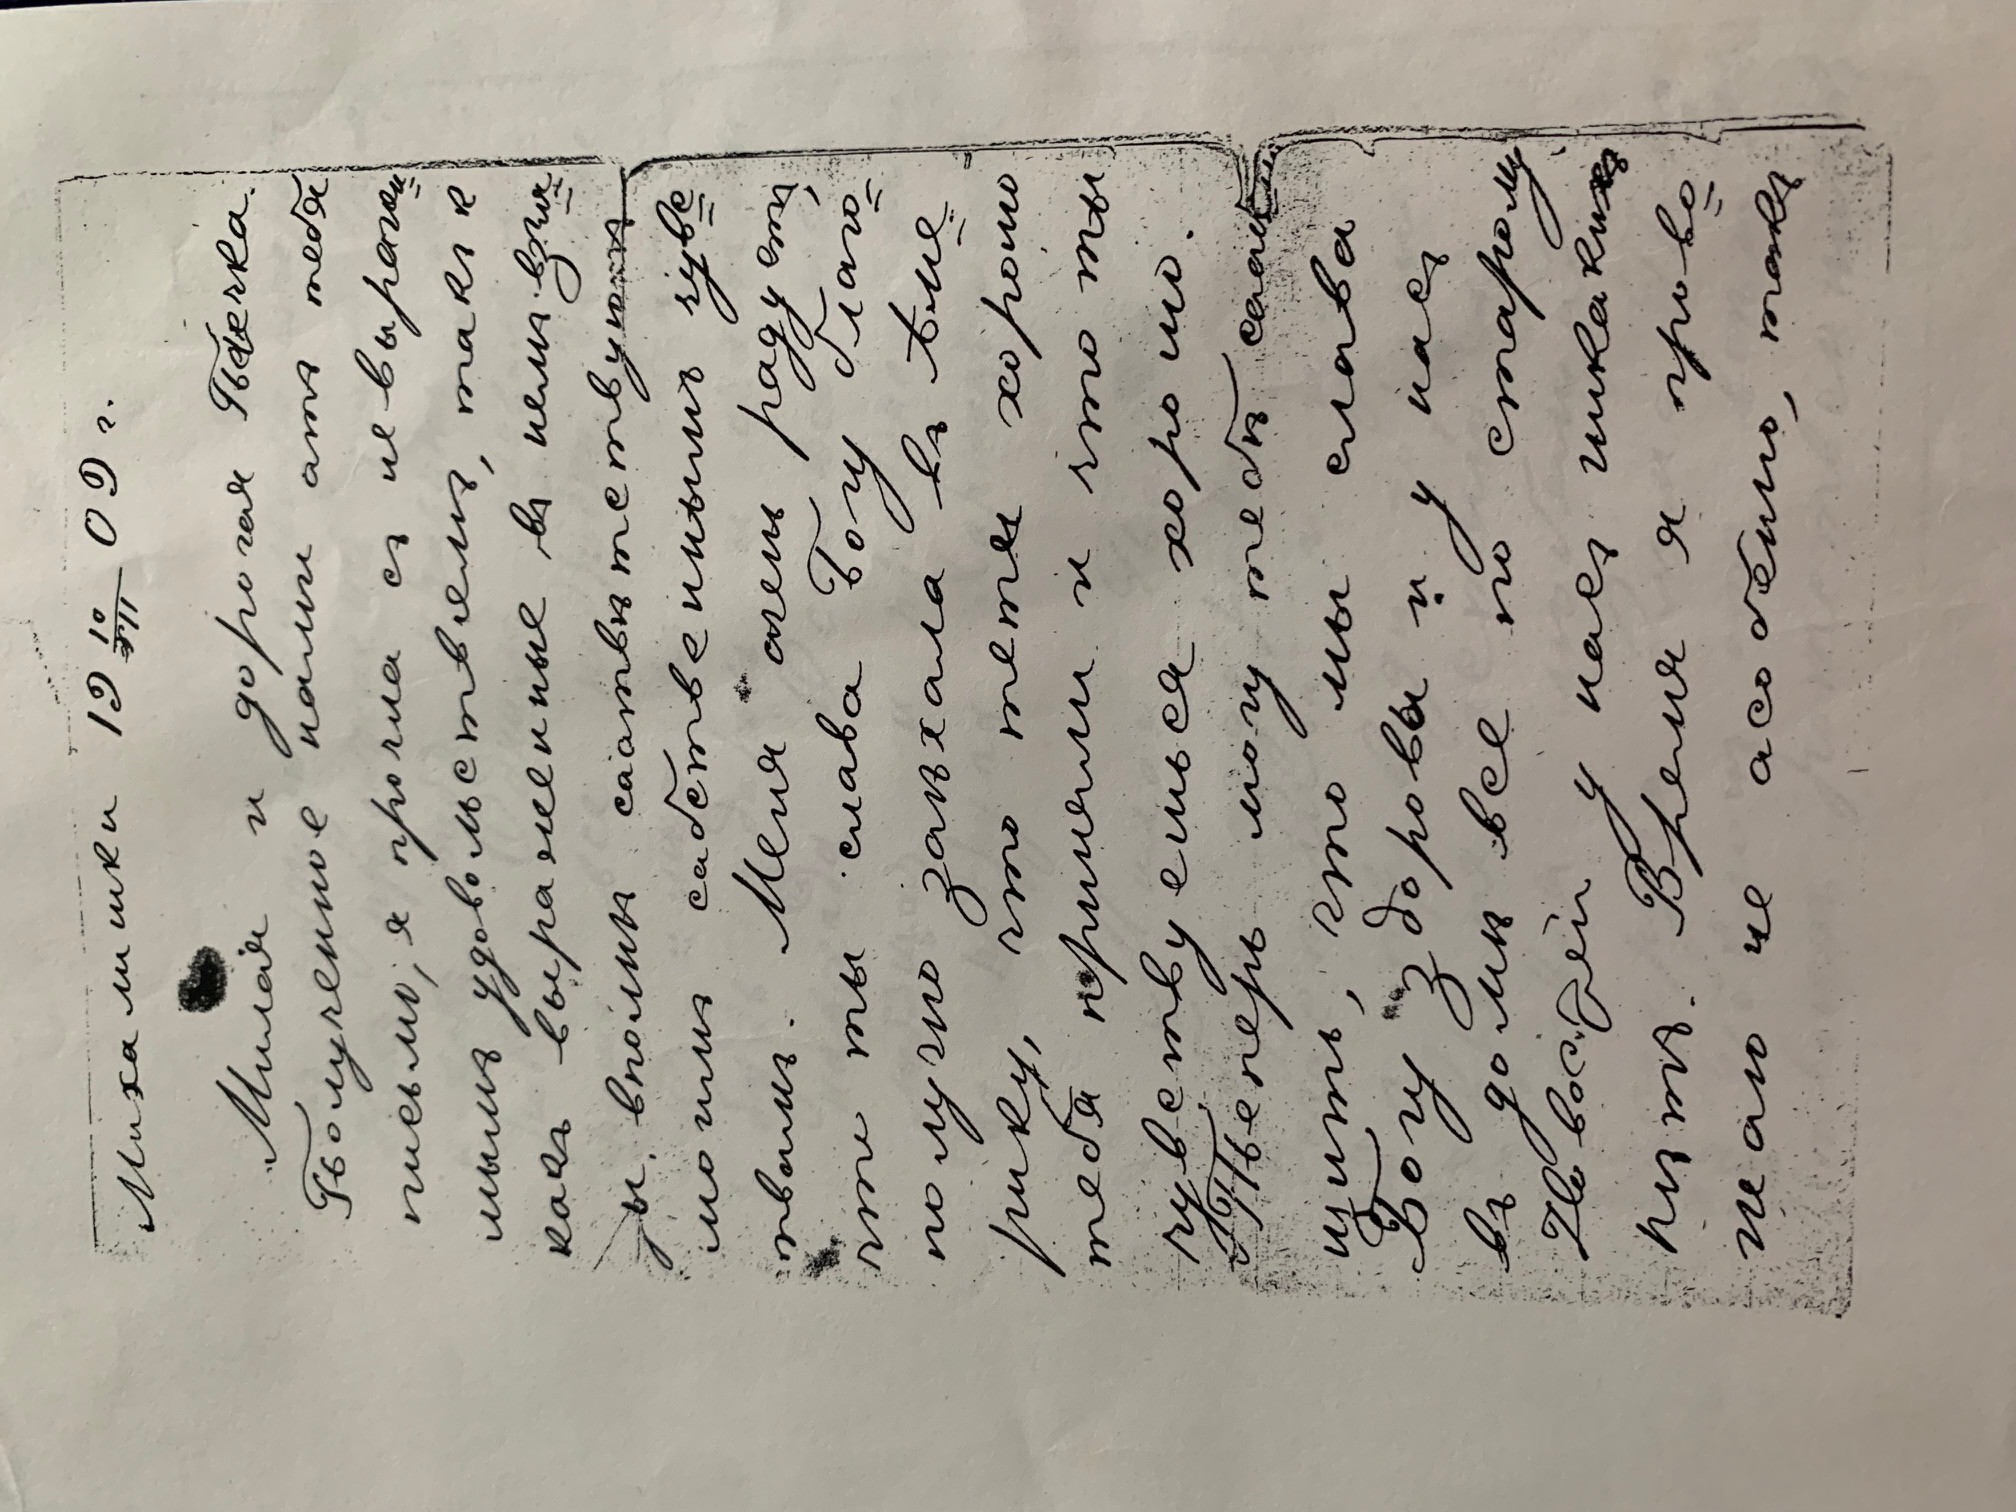 Михалишки 19 10/XII 09 г.
Милая и дорогая Бебечка.
Полученное нами атъ тебя
письмо, я прочла съ невырази=
мымъ удовольствемъ, такъ к
какъ выраженные въ немъ взгля=
ды, вполнѣ саатвѣтствуютъ
моимъ сабственнымъ чувс=
твамъ. Меня очень радуетъ,
что ты слава Богу благо=
получно заѣхала въ Аме=
рику, что тетя хорошо
тебя приняли и что ты
чувствуешься хорошо.
Теперь могу тебѣ саабщ
щить, что мы слава
Богу здоровы и у насъ
въ домѣ все по старому
Новостей у насъ никакихъ
нѣтъ. Время я прово=
жаю не асобенно, такъ